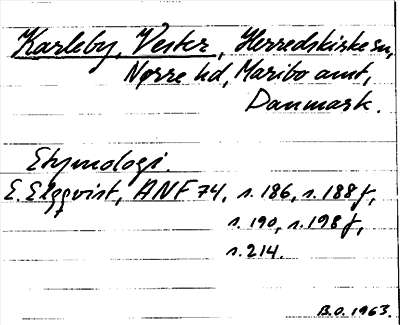 Karleby, Vester, Herredskirkesn,
Nørre hd, Maribo amt,
Danmark.
Etymologi.
E. Elgqvist, ANF 74, s. 186, s. 188 f,
s. 190, s. 198 f,
s. 214.
B.O. 1963.